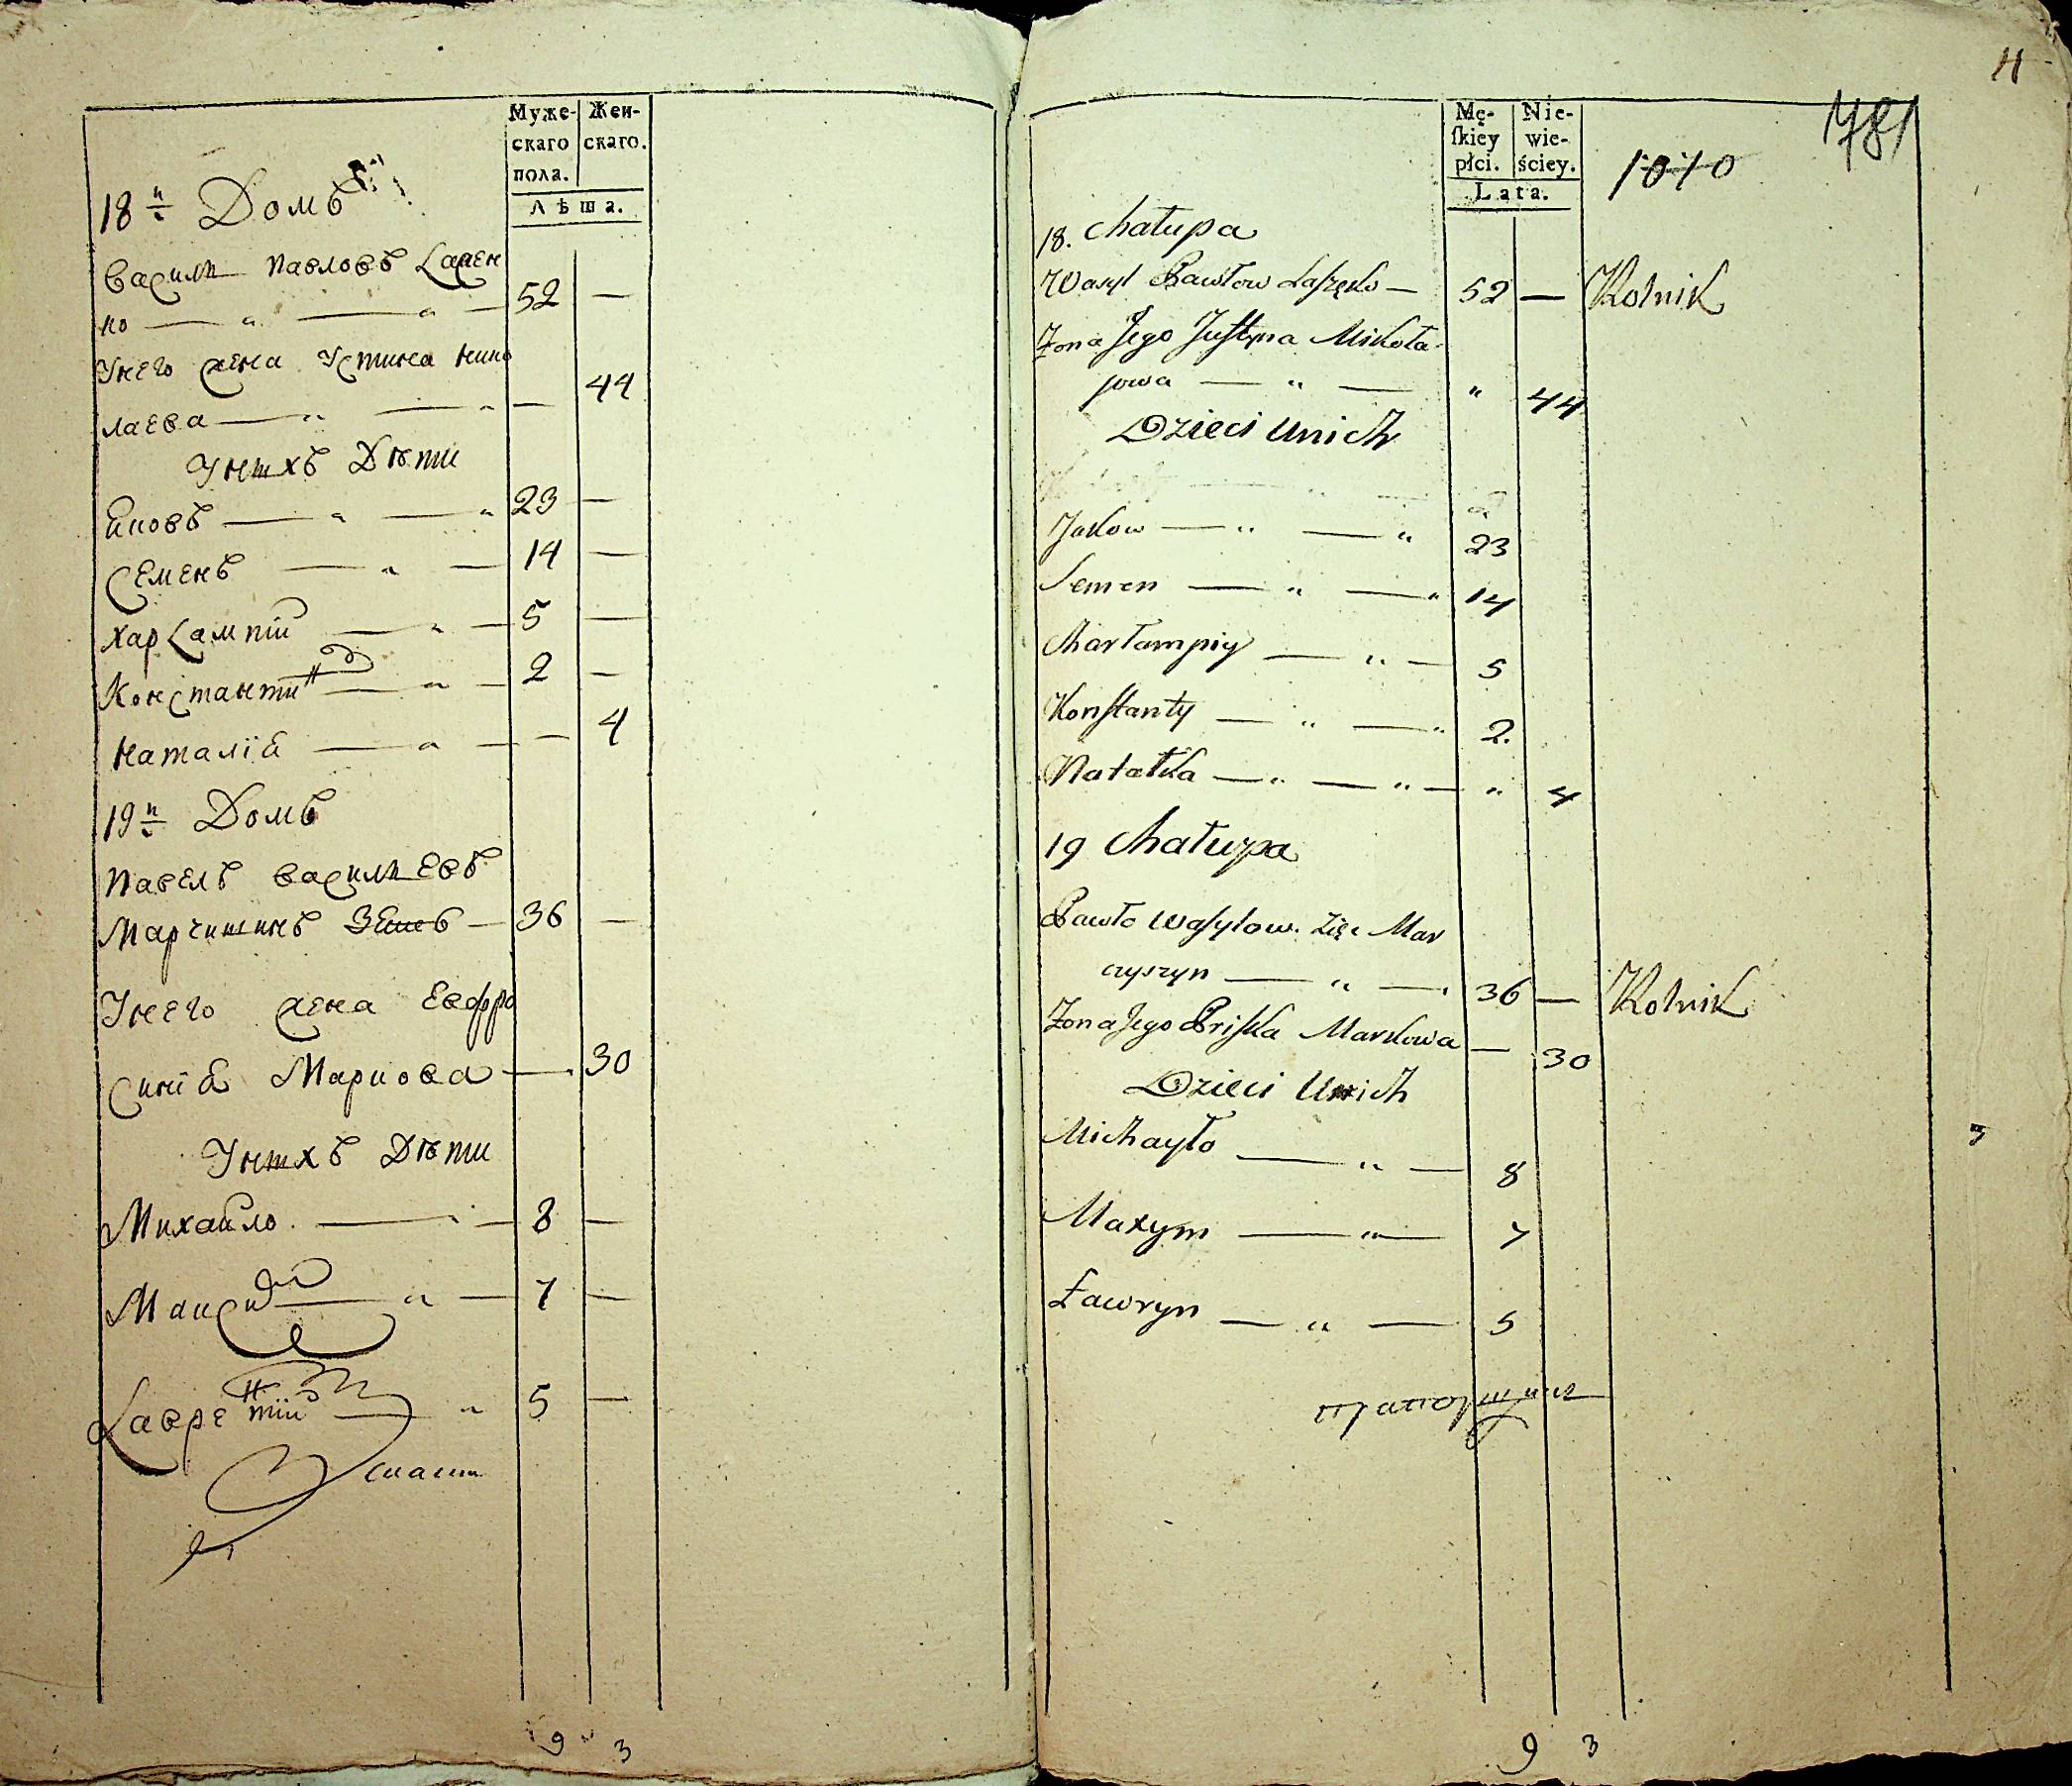 Муже-
скаго
пола.
Жен-
скаго.
Лѣта.
18й Домъ
Василь Павловъ Лащен
ко — " — " — 52 —
У него жена Устина Нико
лаева — " — " — 44
У нихъ Дѣти
Яковъ — " — " 23 —
Семенъ — " — 14 —
Харлампій — " — 5 —
Константин — " — 2 —
Наталія — " — — 4
19й Домъ
Павелъ Васильевъ
Марчишинъ Зять — 36 —
У него жена Евфро
синія Маркова — 30
У нихъ Дѣти
Михайло — 8 —
Максим — " — 7 —
Лаврентій — " 5 —
9 3
4
781
1010
Mę-
ſkiey
płci.
Nie-
wie-
ściey.
Lata.
18. Chałupa
Wasyl Pawłow Laſzęko — 52 — Rolnik
Zona Jego Juſtyna Mikoła
jowa — " — " 44
Dzieci U nich
Jakow — " — " 23
Semen — " — " 14
Charłampiy — " — 5
Konſtanty — " — " 2.
Natałka — " — " — " 4
19 Chałupa
Pawło Waſylow. Zięć Mar
czyszyn — " — 36 — Rolnik
Zona Jego Priſka Markowa — 30
Dzieci U nich
Michayło — " — 8
Maxym — " — 7
Ławryn — " — 5
9 3